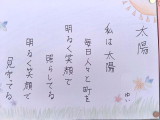 太陽
ゆい
私は太陽
毎日人々と町を
照らしてる
明るく笑顔で
明るく笑顔で
見守ってる